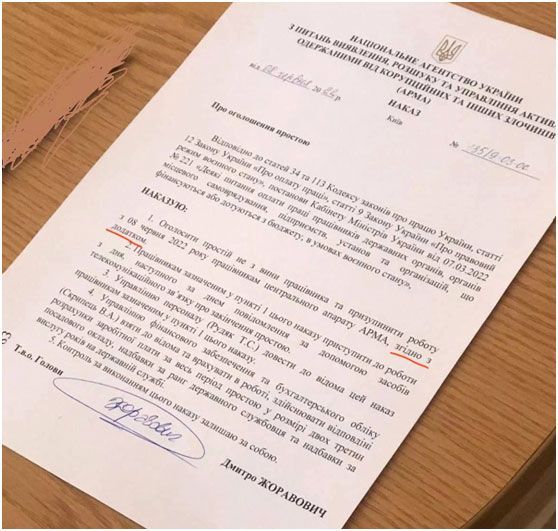 НАЦІОНАЛЬНЕ АГЕНТСТВО УКРАЇНИ
З ПИТАНЬ ВИЯВЛЕННЯ, РОЗШУКУ ТА УПРАВЛІННЯ АКТИВА
ОДЕРЖАНИМИ ВІД КОРУПЦІЙНИХ ТА ІНШИХ ЗЛОЧИНІВ
(АРМА)
НАКАЗ
від 08 червня 2022 р.
Київ
№
Про оголошення простою
Відповідно до статей 34 та 113 Кодексу законів про працю України, статті
12 Закону України «Про оплату праці», статті 9 Закону України «Про правовий
режим воєнного стану», постанови Кабінету Міністрів України від 07.03.2022
№ 221 «Деякі питання оплати праці працівників державних органів, органів
місцевого самоврядування, підприємств, установ та організацій, що
фінансуються або дотуються з бюджету, в умовах воєнного стану»,
НАКАЗУЮ:
1. Оголосити простій не з вини працівника та призупинити роботу
з 08 червня 2022 року працівникам центрального апарату АРМА, згідно з
додатком.
2. Працівникам зазначеним у пункті 1 цього наказу приступити до роботи
з дня, наступного за днем повідомлення за допомогою засобів
телекомунікаційного зв'язку про закінчення простою.
3. Управлінню персоналу (Рудяк Т.С.) довести до відома цей наказ
працівникам зазначеним у пункті 1 цього наказу.
4. Управлінню фінансового забезпечення та бухгалтерського обліку
(Скрипець В.А.) взяти до відома та врахувати в роботі, здійснювати відповідні
розрахунки заробітної плати за весь період простою у розмірі двох третин
посадового окладу, надбавки за ранг державного службовця та надбавки за
вислугу років на державній службі.
5. Контроль за виконанням цього наказу залишаю за собою.
Т.в.о. Голови
Дмитро ЖОРАВОВИЧ